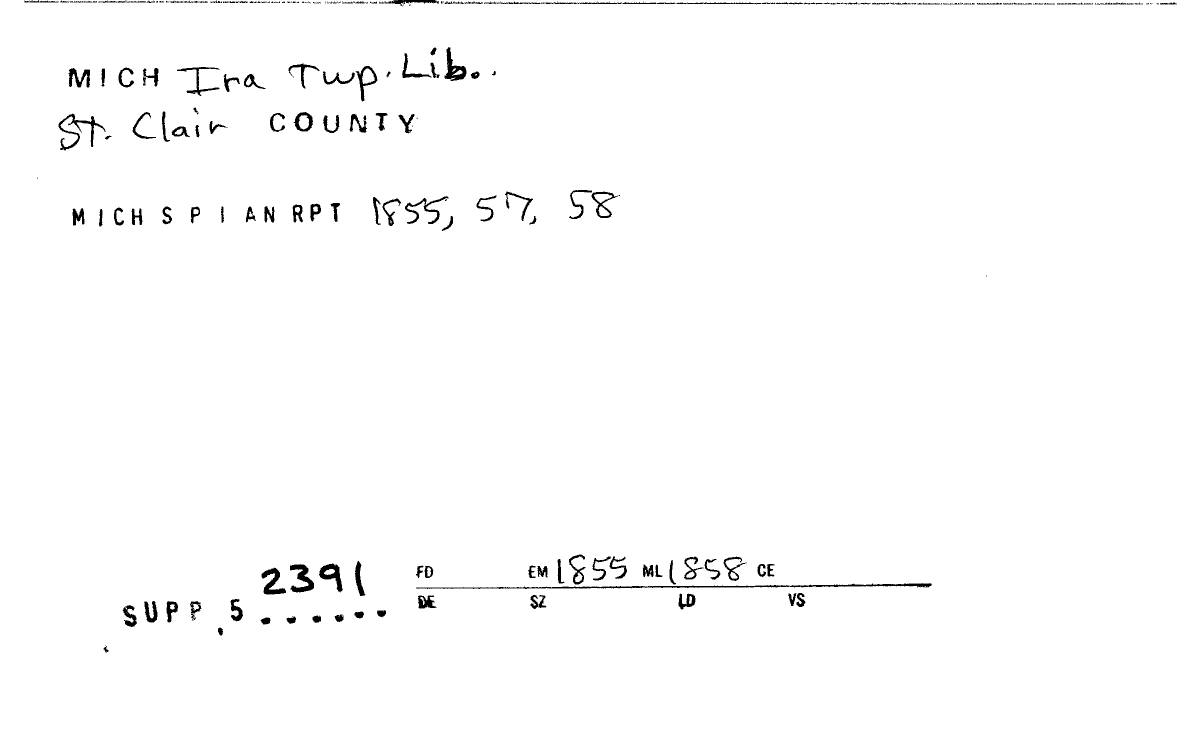 MICH Ira Twp. Lib..
St. Clair COUNTY
MICH S P I AN RPT 1855, 57, 58
2391
SUPP, 5 ......
FD EM 1855 ML 1858 CE
DE SZ LD VS